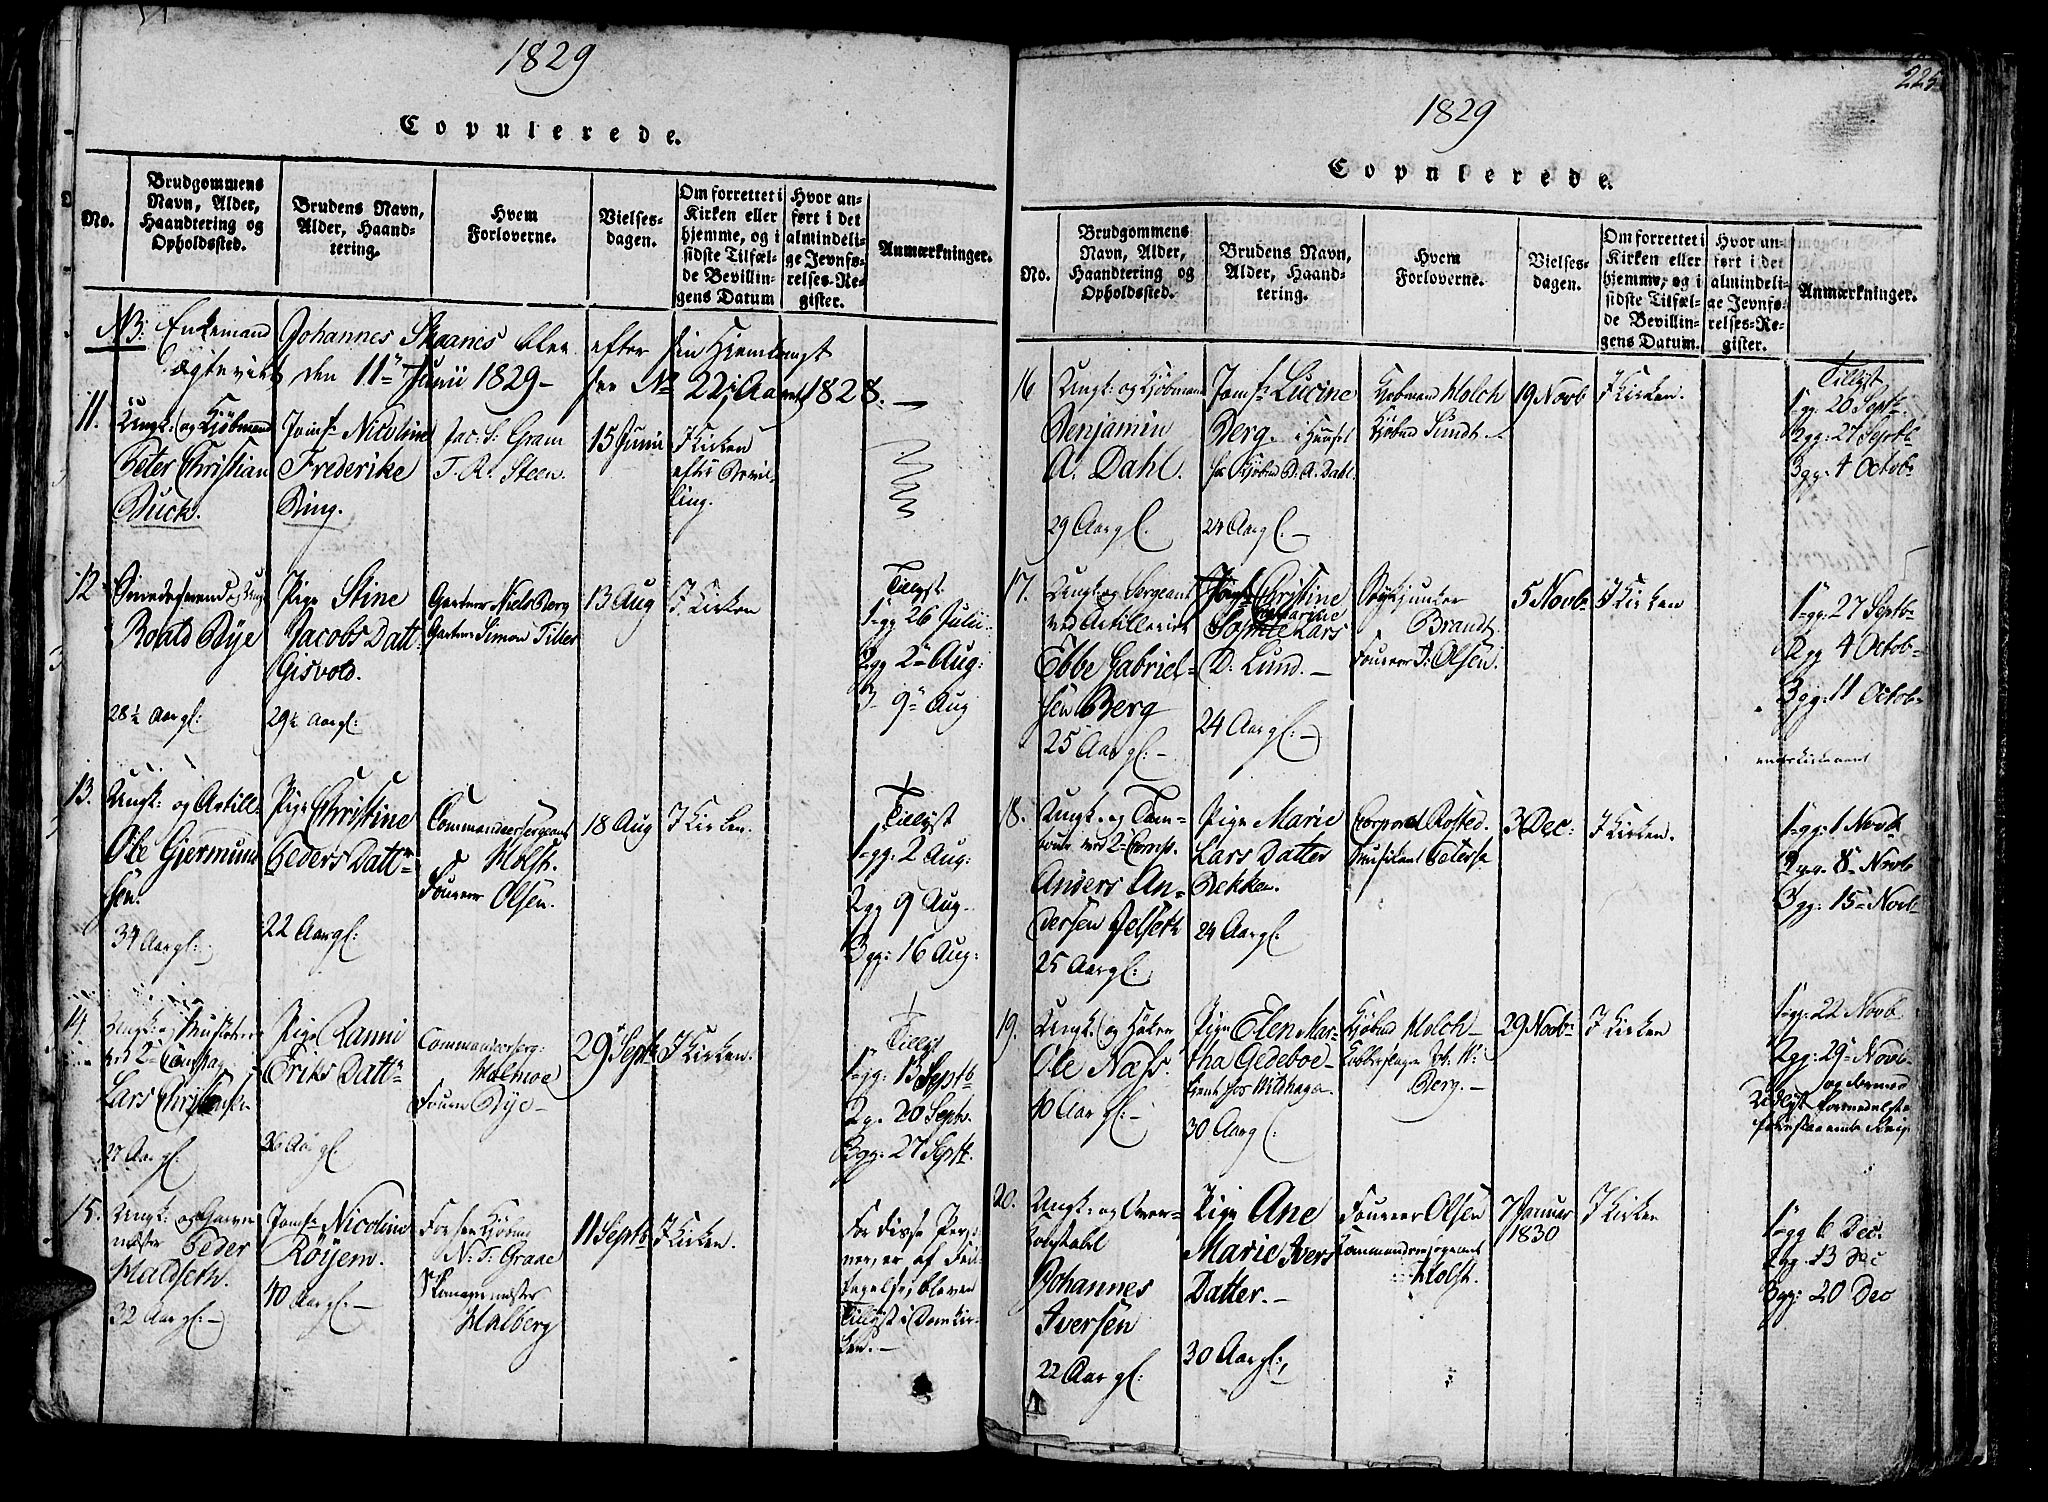 1829
Copulerede.
No.
Brudgommens
Navn, Alder,
Haandtering og
Opholdssted.
Brudens Navn,
Alder, Haand-
tering.
Hvem
Forloverne.
Vielses-
dagen.
Om forrettet i
Kirken eller
hjemme, og i
sidste Tilfæl-
de Bevillin-
gens Datum
Hvor an-
ført i det
almindeli-
ge Jevnfø-
relses-Re-
gister.
Anmærkninger.
NB: Enkemand Johannes Skaanes blev efter sin Hjemkomst
ægteviet den 11te Junii 1829 - see No 22, Aaret 1828. —
11.
Ungk: og Kjøbmand
Peter Christian
Buck.
Jomfr Nicoline
Frederike
Bing.
Jac. S: Gram
T. R. Steen.
15 Junii
I Kirken
efter Bevil-
ling.
12
Roald Bye
28½ Aar gl:
Pige Stine
Jacobs Datt
Gisvold.
29½ Aar gl:
Gartner Niels Berg
Gartner Simon Tiller
13 Aug
I Kirken
Tillyst
1 gg 26 Julii
2 gg 2 Aug:
3 - 9 Aug
13.
Ungk: og Artill:
Ole Gjermund
sen.
34 Aar gl:
Pige Christine
Peders Dattr
22 Aar gl:
Commandeersergeant
Holst.
Foureer Olsen.
18 Aug
I Kirken.
Tillyst
1 gg: 2 Aug:
2 gg 9 Aug.
3 gg: 16 Aug:
14.
Ungk: og Musketeer
ved 2 Compag
Lars Christensen
27 Aar gl.
Pige Ranni
Eriks Dattr
26 Aar gl.
Commandeerserg:
Holmoe
Foureer Bye -
29 Septr
I Kirken.
Tillyst
1 gg: 13 Septb
2 g. 20 Septr.
3 gg: 27 Septr.
15.
Ungk: og Garver
mester Peder
Maldseth.
32 Aar gl: -
Jomfr Nicoline
Röyem.
40 Aar gl. -
N. T. Graae
Malberg
11 Septb
I Kirken.
For disse Perso
ner, er, af Feil-
tagelse, bleven
Tillyst i Domkir-
ken. -
225
1829
Copulerede.
No.
Brudgommens
Navn, Alder,
Haandtering og
Opholdssted.
Brudens Navn,
Alder, Haand-
tering.
Hvem
Forloverne.
Vielses-
dagen.
Om forrettet i
Kirken eller
hjemme, og i
sidste Tilfæl-
de Bevillin-
gens Datum.
Hvor an-
ført i det
almindeli-
ge Jevnfø-
relses-Re-
gister.
Anmærkninger.
16
Ungk: og Kjøbmand
Benjamin
A. Dahl.
29 Aar gl.
Jomfr Lucine
Berg. i Huuset
hos Kjøbmd B. A. Dahl.
24 Aar gl. -
Kjøbmand Holch
Kjøbmd Lundt.
19 Novb
I Kirken.
Tillyst
1 gg: 20 Septb.
2 gg: 27 Septb.
3 gg: 4 Octob
17.
Ungk. og Sergeant
ved Artilleriet
Ebbe Gabriel-
sen Berg
25 Aar gl. -
Christine
Catharine
Sophie Lars
D. Lund. -
24 Aar gl: -
Stykjunker
Brandt
Foureer J: Olsen.
5 Novb
I Kirken
1 gg: 27 Septb
2 gg 4 Octob
3 gg: 11 Octob
18.
Ungk. og Tam-
bour ved 2 Comp.
Anders An-
dersen Jelseth
25 Aar gl:
Pige Marie
Lars Datter
Bekken.
24 Aar gl.
Corporal Rosted.
Musikant Peterse
3 Dec:
I Kirken.
1 gg: 1 Novb
2 gg. 8 Novb
3 gg: 15 Novb
19.
Ungk. og Høker
Ole Næss.
40 Aar gl: -
Pige Elen Mar-
tha Gedeboe -
30 Aar gl:
Kjøbmd Holch -
Berg. -
29 Novbr
I Kirken
1 gg: 22 Novb.
2 gg: 29 Novb
20.
Ungk. og Over-
constabel
Johannes
Iversen
22 Aar gl:
Pige Ane
Marie Ivers
Datter. -
30 Aar gl:,
Foureer Olsen
Commandeersergeant
Holst.
7 Januar
1830
I Kirken
1 gg 6 Dec.
2 g. 13 Dec
3 gg: 20 Dec